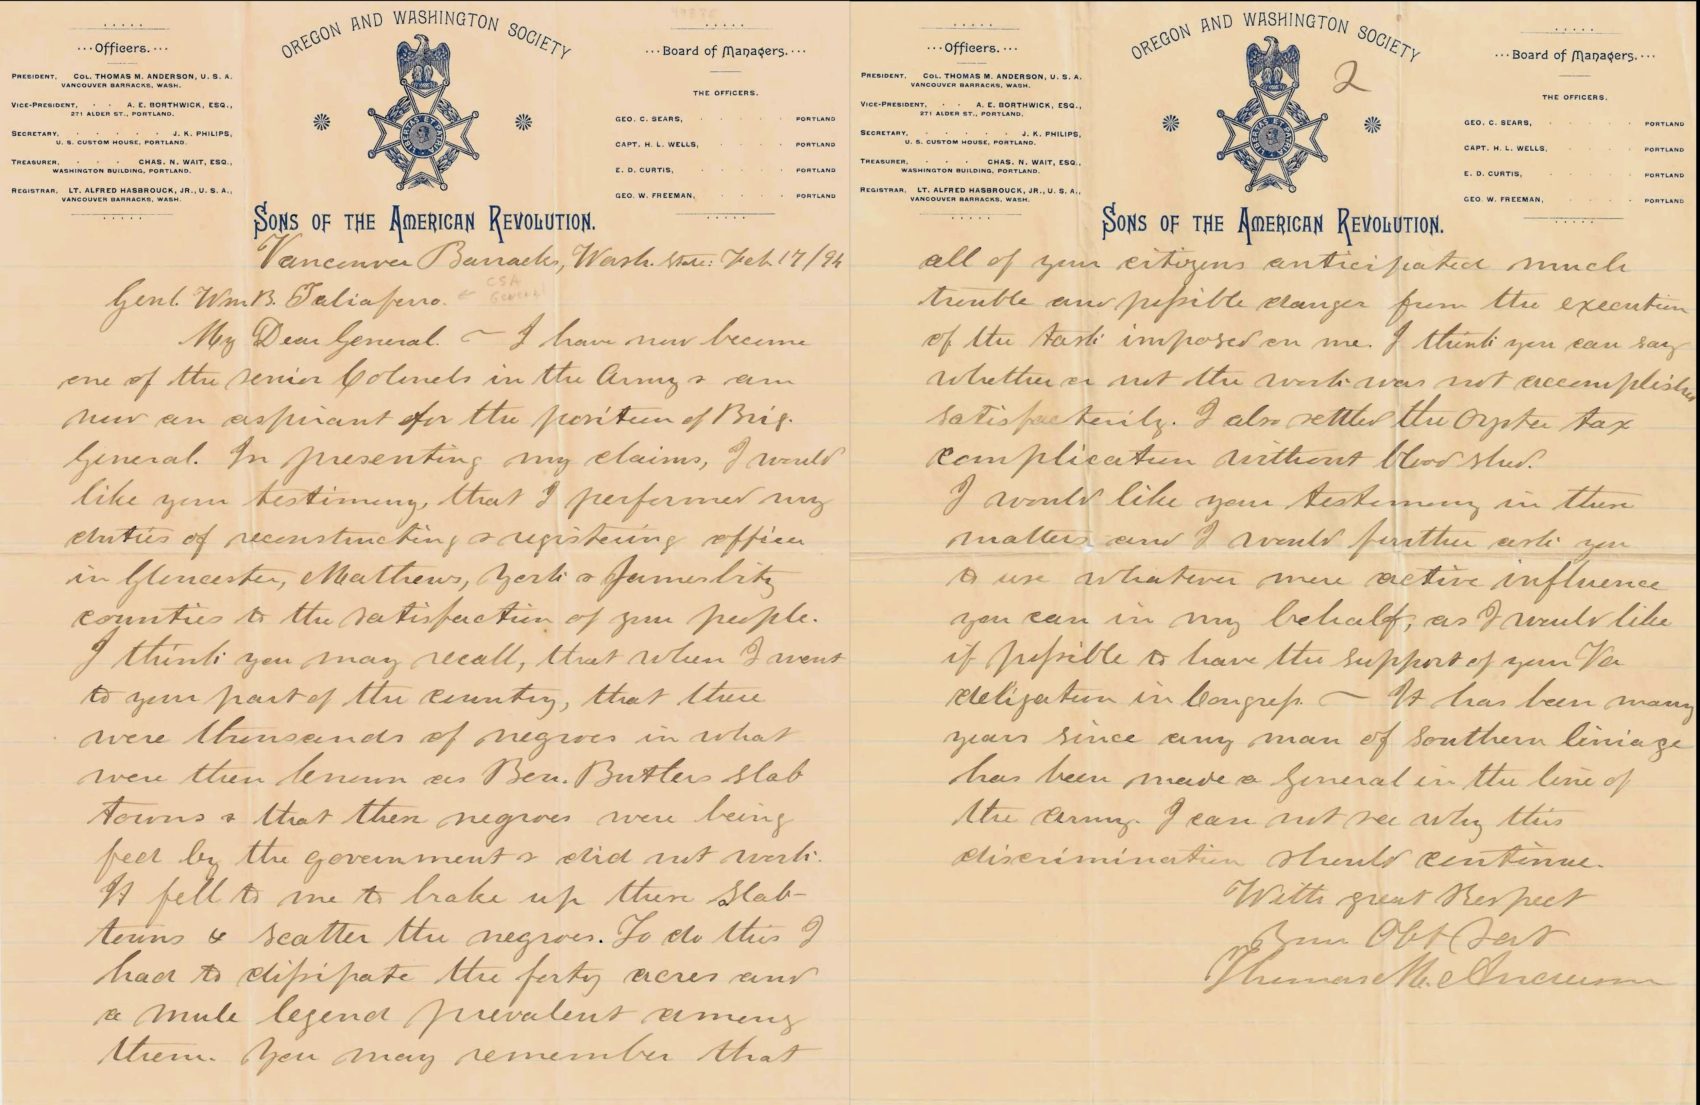 OREGON AND WASHINGTON SOCIETY
Officers.
PRESIDENT, COL. THOMAS M. ANDERSON, U. S. A.
VANCOUVER BARRACKS, WASH.
VICE-PRESIDENT, A. E. BORTHWICK, ESQ.,
271 ALDER ST., PORTLAND.
SECRETARY, J. K. PHILIPS,
U. S. CUSTOM HOUSE, PORTLAND.
TREASURER, CHAS. N. WAIT, ESQ.,
WASHINGTON BUILDING, PORTLAND.
REGISTRAR, LT. ALFRED HASBROUCK, JR., U. S. A.,
VANCOUVER BARRACKS, WASH.
LIBERTAS ET PATRIA
Board of Managers.
THE OFFICERS.
GEO. C. SEARS, PORTLAND
CAPT. H. L. WELLS, PORTLAND
E. D. CURTIS, PORTLAND
GEO. W. FREEMAN, PORTLAND
SONS OF THE AMERICAN REVOLUTION.
Vancouver Barracks, Wash. State: Feb. 17/94
Genl. Wm B. Taliaferro. ← CSA
General
My Dear General. ~ I have now become
one of the senior Colonels in the Army & am
now an aspirant for the position of Brig.
General. In presenting my claims, I would
like your testimony, that I performed my
duties of reconstructing & registering officer
in Gloucester, Mathews, York & James City
counties to the satisfaction of your people.
I think you may recall, that when I went
to your part of the country, that there
were thousands of negroes in what
were then known as Ben. Butlers slab
towns & that these negroes were being
fed by the government & did not work.
It fell to me to brake up these slab-
towns & scatter the negroes. To do this I
had to dissipate the forty acres and
a mule legend prevalent among
them. You may remember that
OREGON AND WASHINGTON SOCIETY
2
Officers.
PRESIDENT, COL. THOMAS M. ANDERSON, U. S. A.
VANCOUVER BARRACKS, WASH.
VICE-PRESIDENT, A. E. BORTHWICK, ESQ.,
271 ALDER ST., PORTLAND.
SECRETARY, J. K. PHILIPS,
U. S. CUSTOM HOUSE, PORTLAND.
TREASURER, CHAS. N. WAIT, ESQ.,
WASHINGTON BUILDING, PORTLAND.
REGISTRAR, LT. ALFRED HASBROUCK, JR., U. S. A.,
VANCOUVER BARRACKS, WASH.
LIBERTAS ET PATRIA
Board of Managers.
THE OFFICERS.
GEO. C. SEARS, PORTLAND
CAPT. H. L. WELLS, PORTLAND
E. D. CURTIS, PORTLAND
GEO. W. FREEMAN, PORTLAND
SONS OF THE AMERICAN REVOLUTION.
all of your citizens anticipated much
trouble and possible danger from the execution
of the task imposed on me. I think you can say
whether or not the work was not accomplished
satisfactorily. I also settled the Oyster tax
complication without blood shed.
I would like your testimony in these
matters and I would further ask you
to use whatever more active influence
you can in my behalf, as I would like
if possible to have the support of your Va
deligation in Congress. ~ It has been many
years since any man of southern liniage
has been made a General in the line of
the army. I can not see why this
discrimination should continue.
With great Respect
Your Obt Sert
Thomas M. Anderson